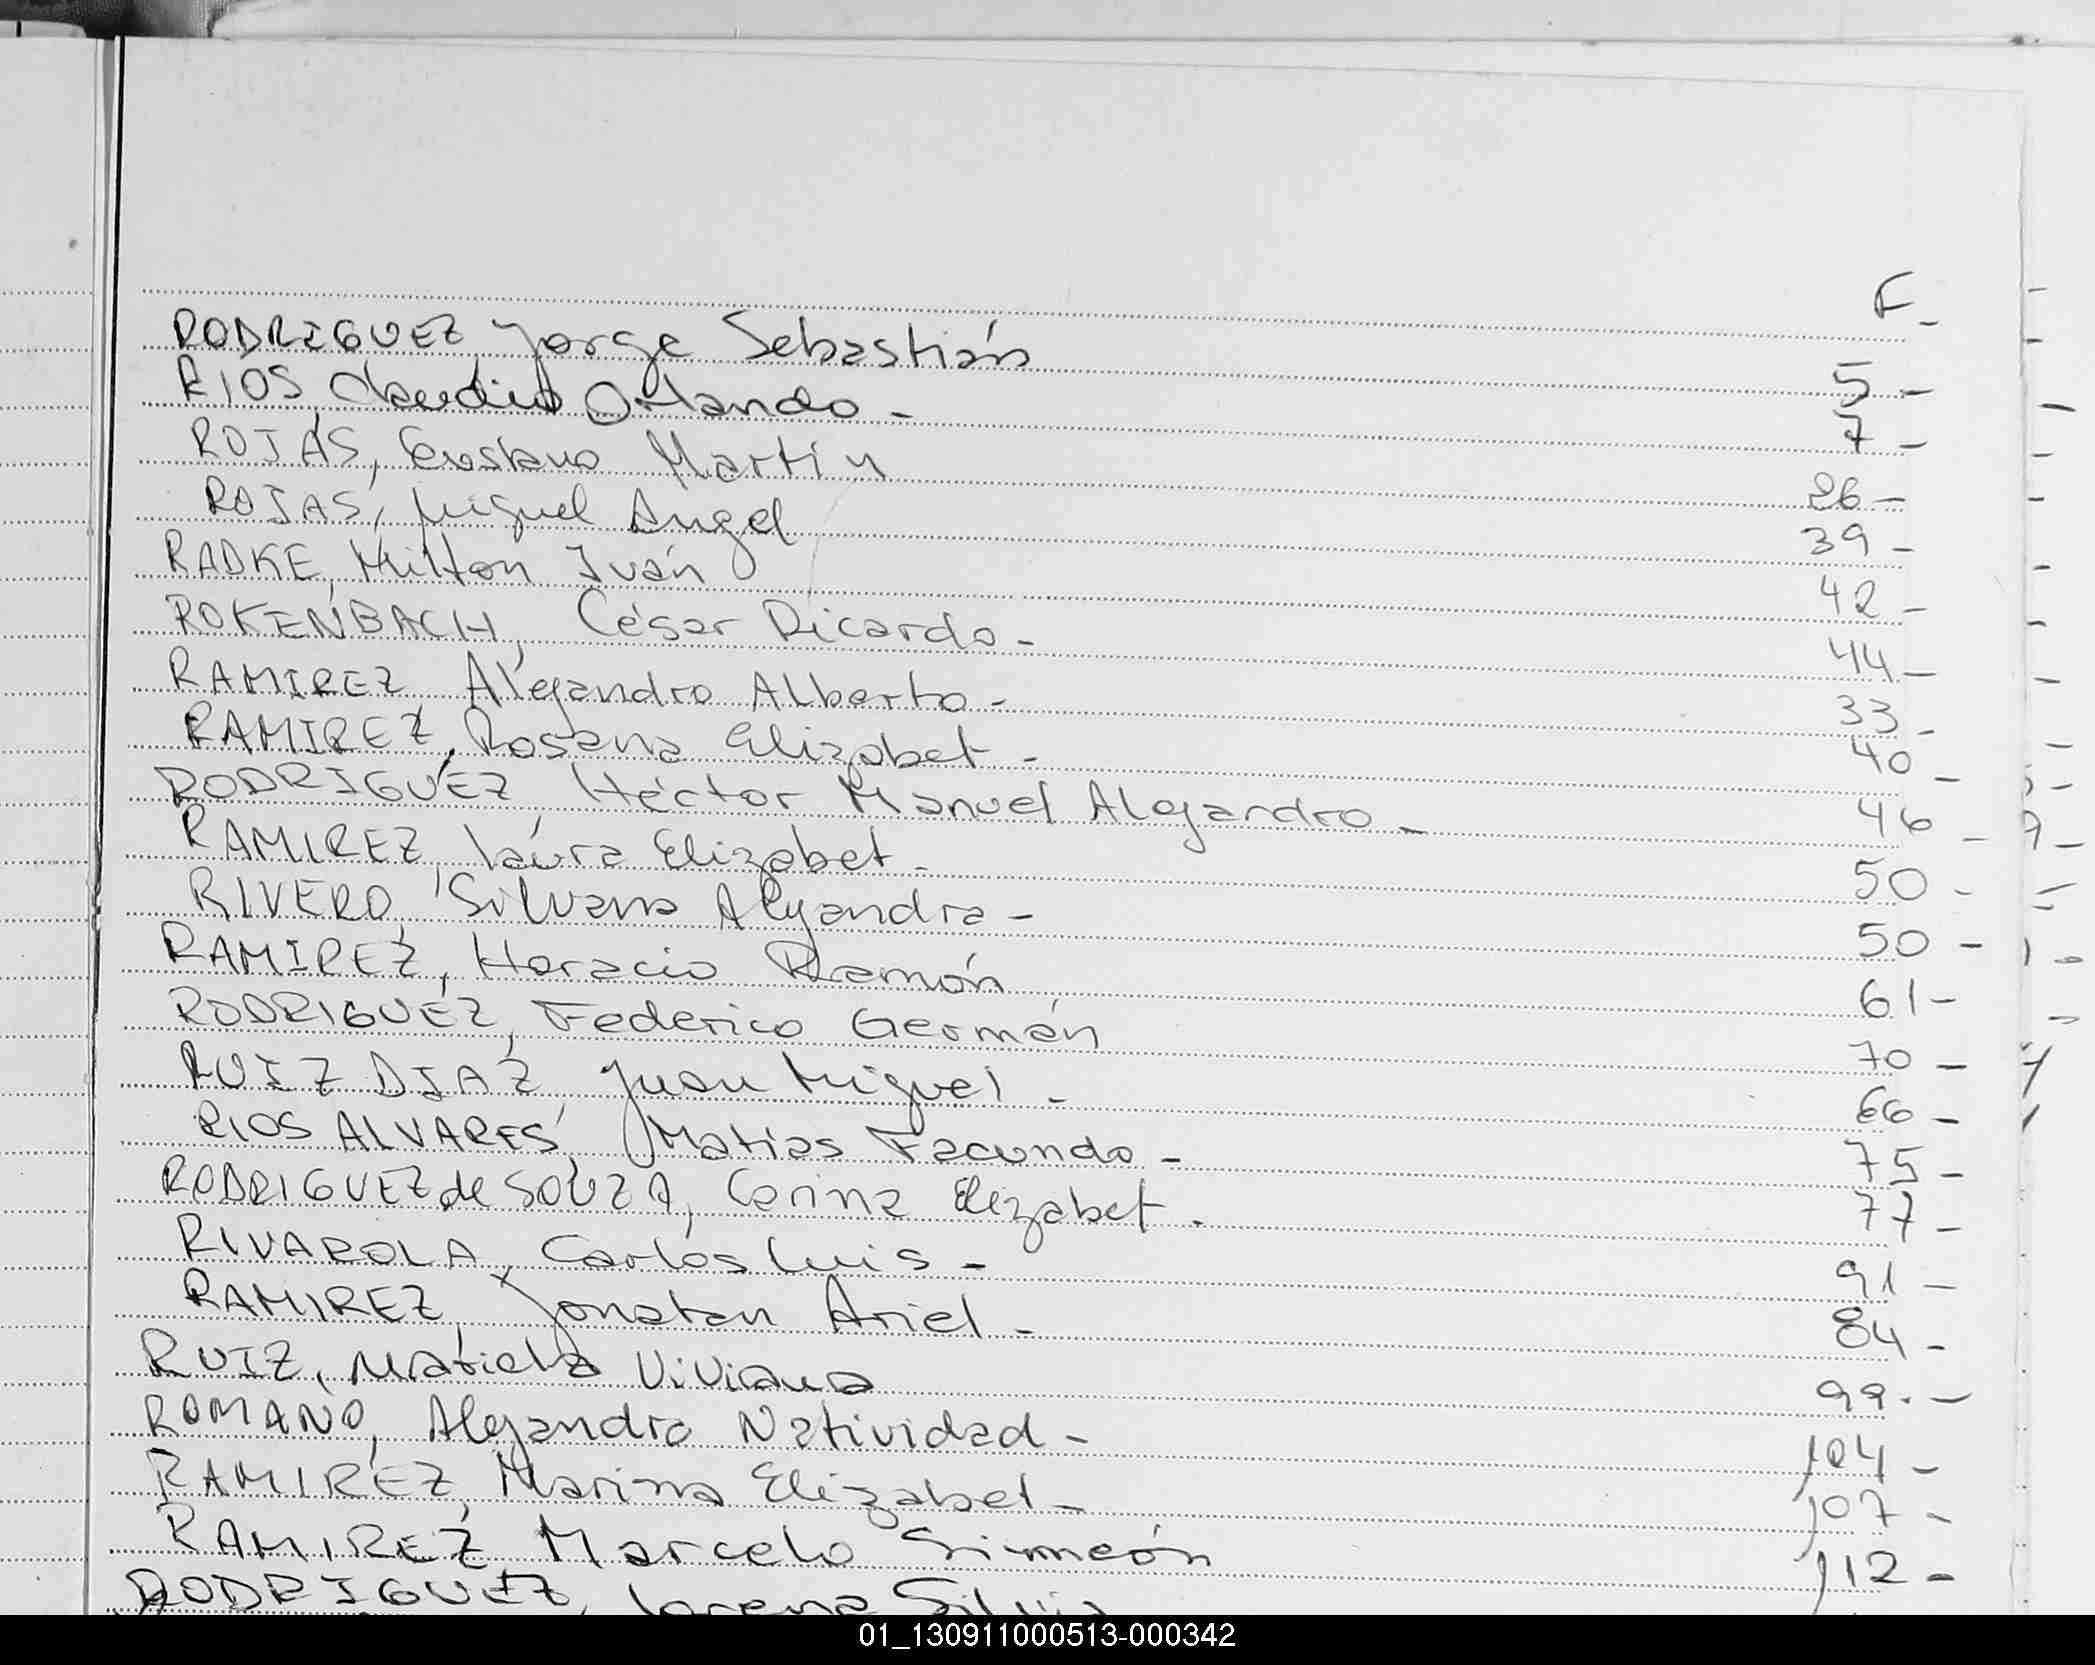 F-
RODRIGUEZ, Jorge Sebastián 5-
RIOS, Claudio Orlando - 7-
ROJAS, Gustavo Martín 26-
ROJAS, Miguel Angel 39-
RADKE, Milton Iván 42-
ROKENBACH, César Ricardo - 44-
RAMIREZ, Alejandro Alberto - 33-
RAMIREZ, Rosana Elizabet - 40-
RODRIGUEZ, Héctor Manuel Alejandro - 46-
RAMIREZ, Laura Elizabet - 50-
RIVERO, Silvana Alejandra - 50-
RAMIREZ, Horacio Ramón 61-
RODRIGUEZ, Federico Germán 70-
RUIZ DIAZ, Juan Miguel - 66-
RIOS ALVARES, Matias Facundo - 75-
RODRIGUEZ de SOUZA, Carina Elizabet. 77-
RIVAROLA, Carlos Luis - 91-
RAMIREZ, Jonatan Ariel - 84-
RUIZ, Mariela Viviana 99.-
ROMANO, Alejandra Natividad - 104-
RAMIREZ, Marina Elizabet - 107-
RAMIREZ, Marcelo Simeón 112-
RODRIGUEZ, Lorena Silvia
01_130911000513-000342